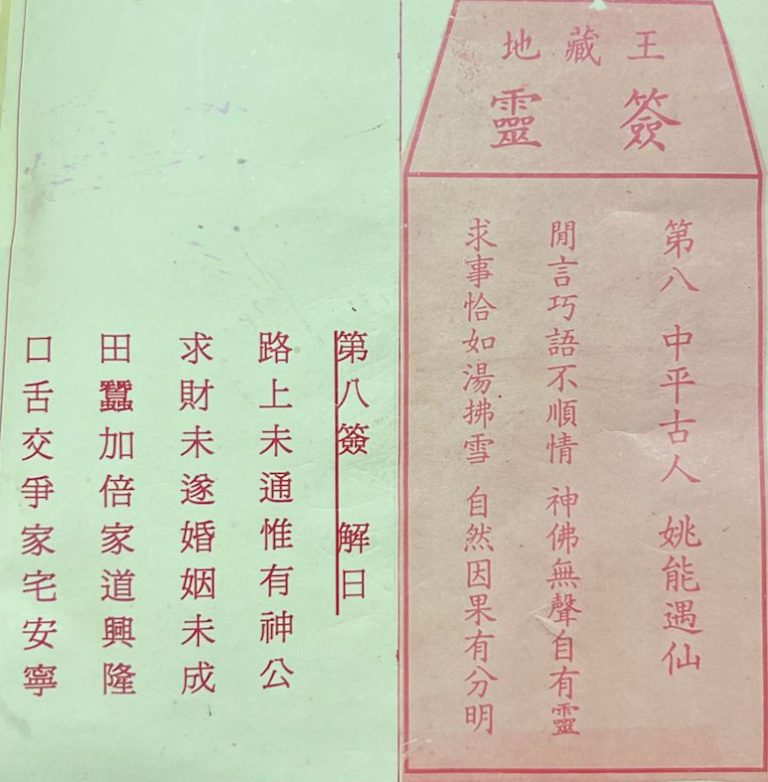 地藏王
靈簽
第八 中平古人 姚能遇仙
閒言巧語不順情 神佛無聲自有靈
求事恰如湯拂雪 自然因果有分明
第八簽 解曰
路上未通惟有神公
求財未遂婚姻未成
田蠶加倍家道興隆
口舌交爭家宅安寧